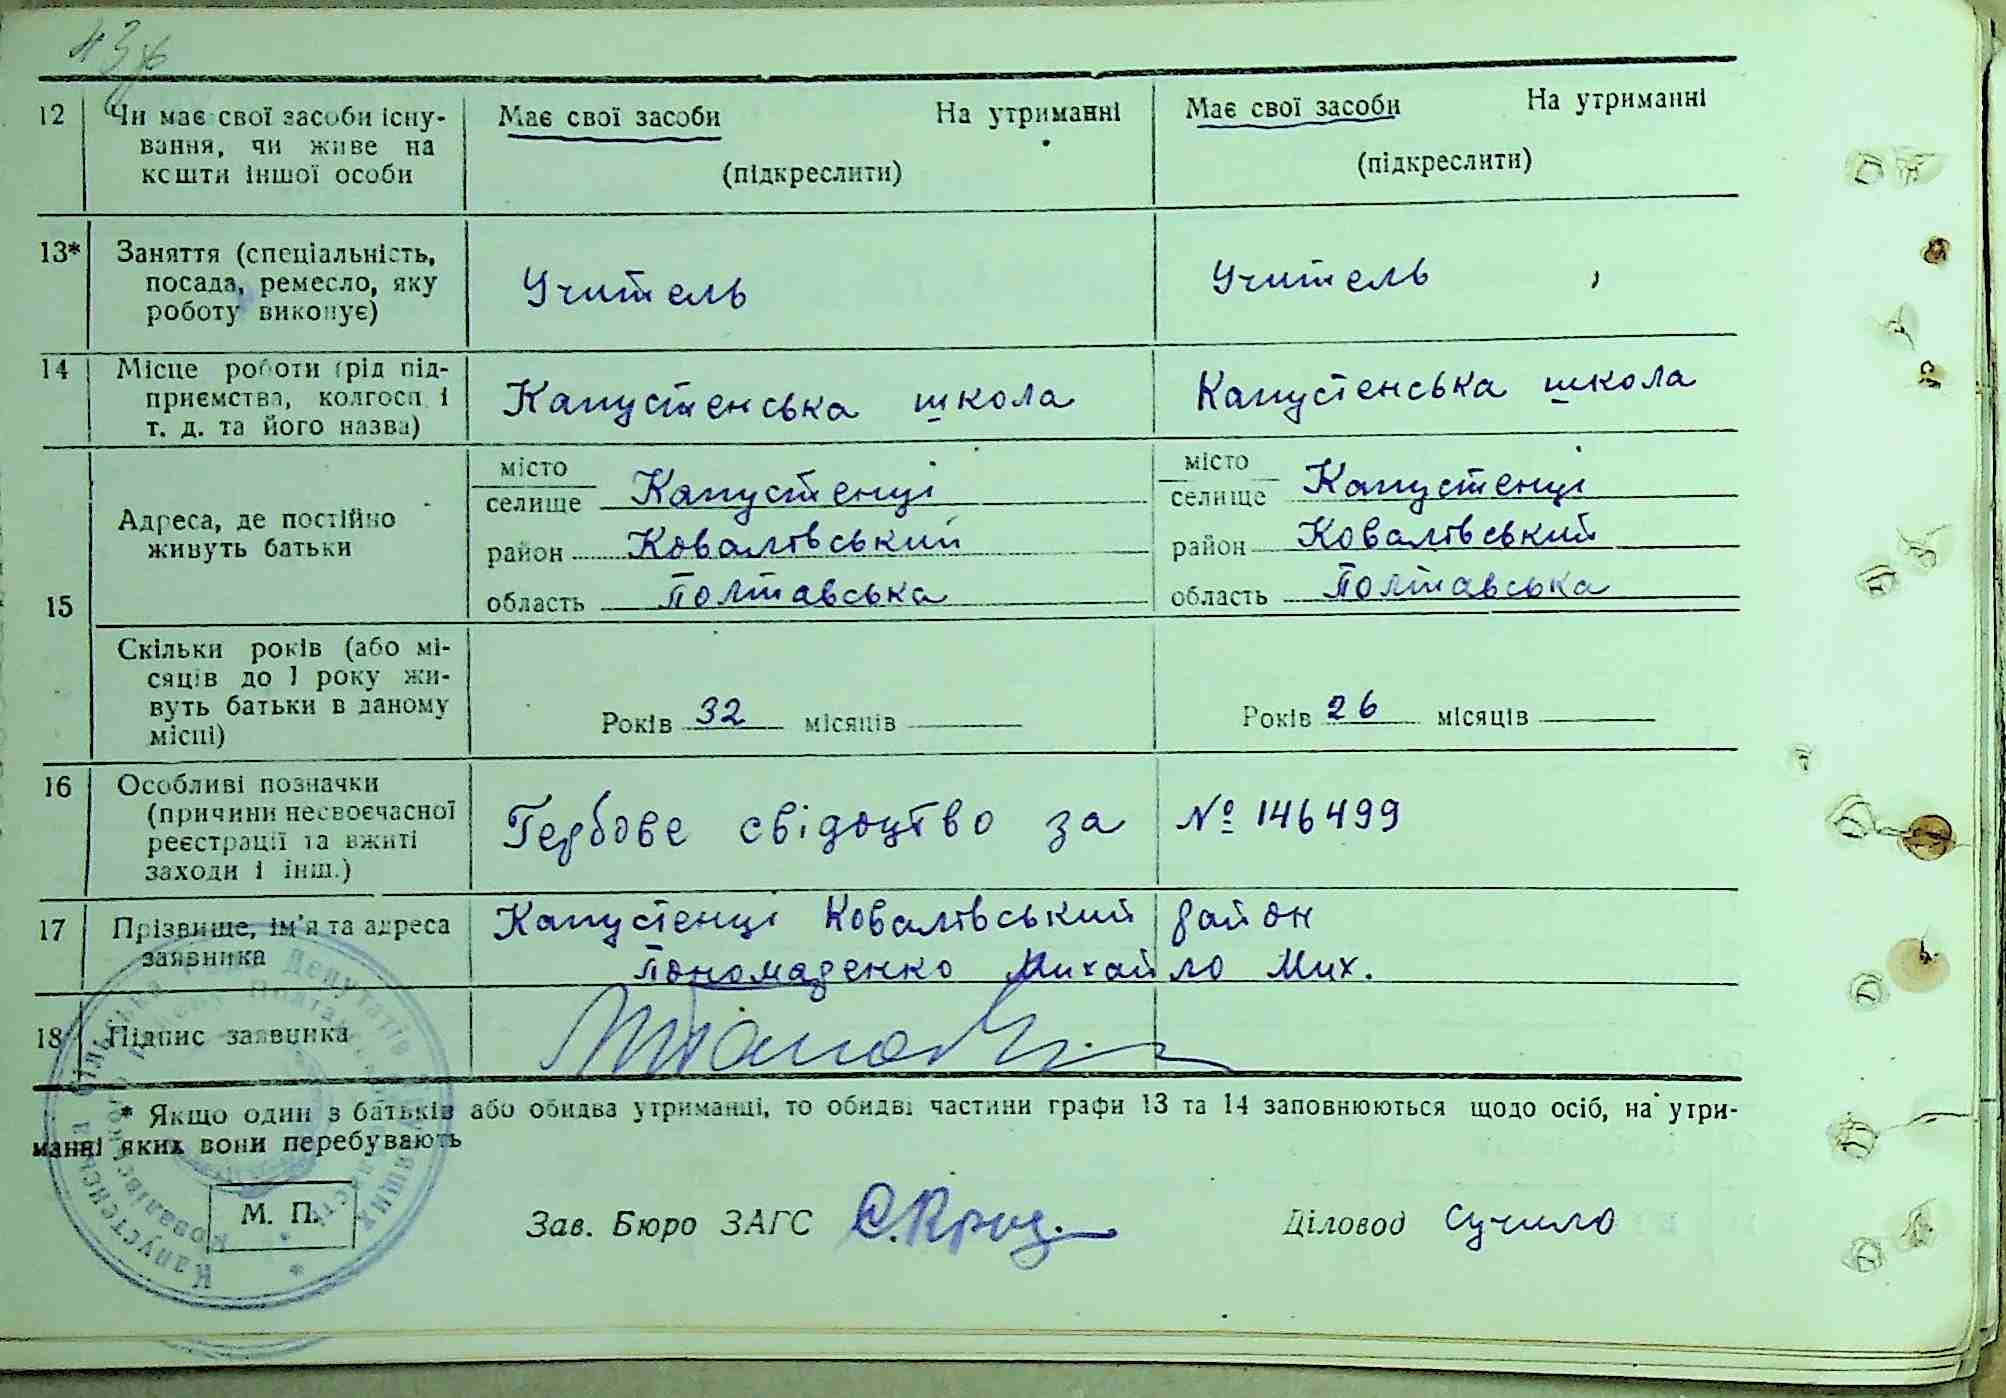 12 Чи має свої засоби існу- Має свої засоби На утриманні Має свої засоби На утриманні
вання, чи живе на
кошти іншої особи (підкреслити) (підкреслити)
13* Заняття (спеціальність,
посада, ремесло, яку Учитель Учитель
роботу виконує)
14 Місце роботи (рід під-
приємства, колгосп і Капустенська школа Капустенська школа
т. д. та його назва)
15 місто місто
селище Капустенці селище Капустенці
Адреса, де постійно
живуть батьки район Ковалівський район Ковалівський
область Полтавська область Полтавська
Скільки років (або мі-
сяців до 1 року жи-
вуть батьки в даному
місці) Років 32 місяців Років 26 місяців
16 Особливі позначки
(причини несвоєчасної
реєстрації та вжиті Гербове свідоцтво за № 146499
заходи і інш.)
17 Прізвище, ім'я та адреса Капустенці Ковалівський район
заявника Пономаренко Михайло Мих.
18 Підпис заявника
* Якщо один з батьків або обидва утриманці, то обидві частини графи 13 та 14 заповнюються щодо осіб, на утри-
манні яких вони перебувають
М. П. Зав. Бюро ЗАГС Діловод Сучило